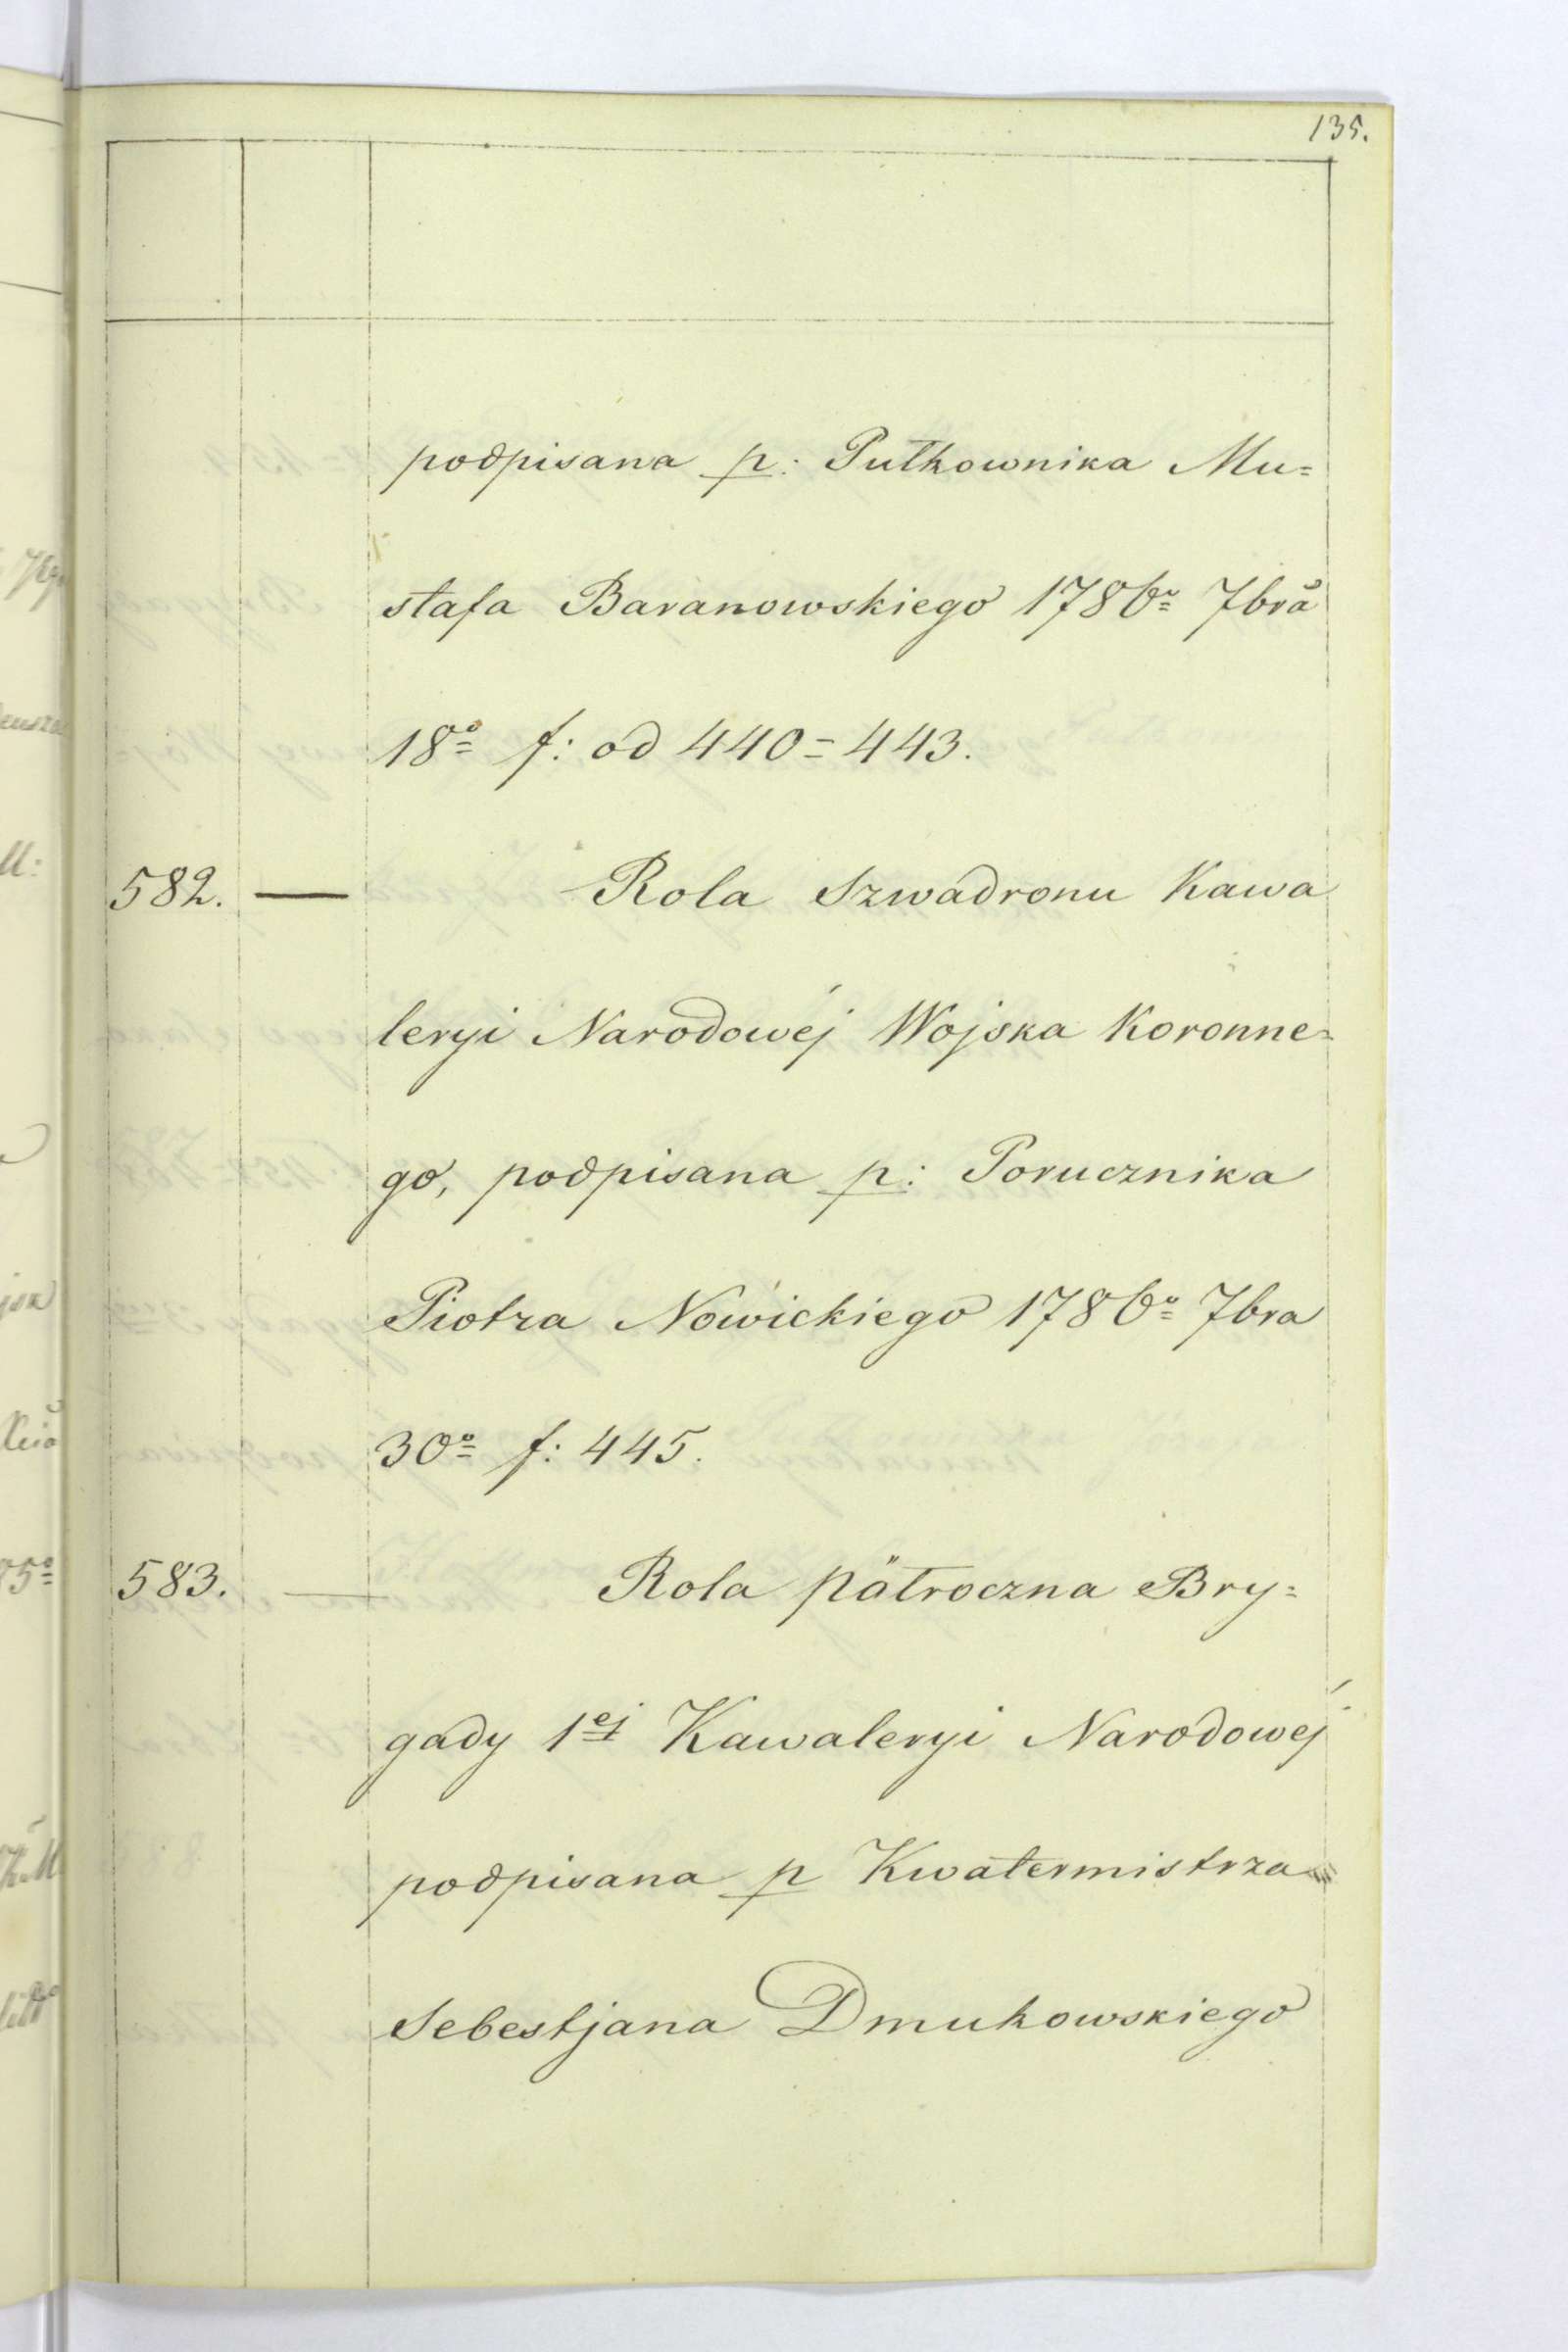 135.
podpisana p: Pułkownika Mu=
stafa Baranowskiego 1786º 7bra
18º f: od 440=443.
582. — Rola Szwadronu Kawa
leryi Narodowéj Wojska Koronne=
go, podpisana p: Porucznika
Piotra Nowickiego 1786º 7bra
30º f: 445.
583. — Rola pätroczna Bry=
gady 1ej Kawaleryi Narodowéj
podpisana p Kwatermistrza
Sebestjana Dmukowskiego